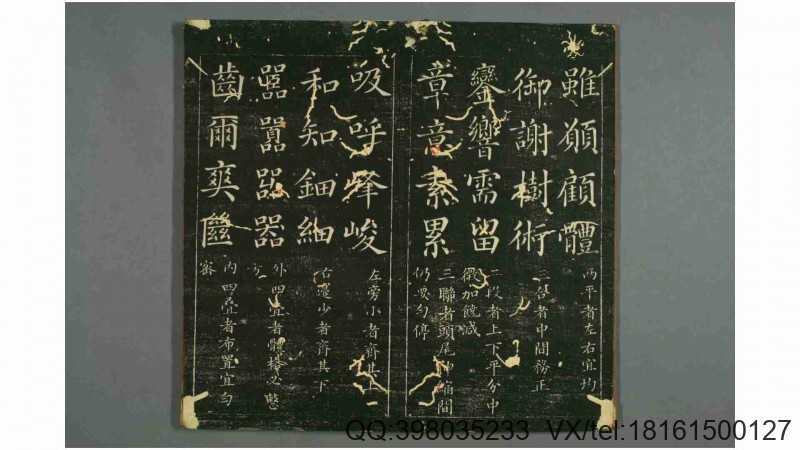 雖頋顧體
兩平者左右宜均
御謝樹術
三合者中間務正
鑾響需留
二段者上下平分中
微加饒減
章意素累
三聯者頭尾伸縮間
仍要勻停
吸呼峰峻
左旁小者齊其上
和知鈿細
右邊少者齊其下
嚚囂噐器
外四疊者體
內四疊者布置宜勻
齒爾爽
QQ:398035233 VX/tel:18161500127